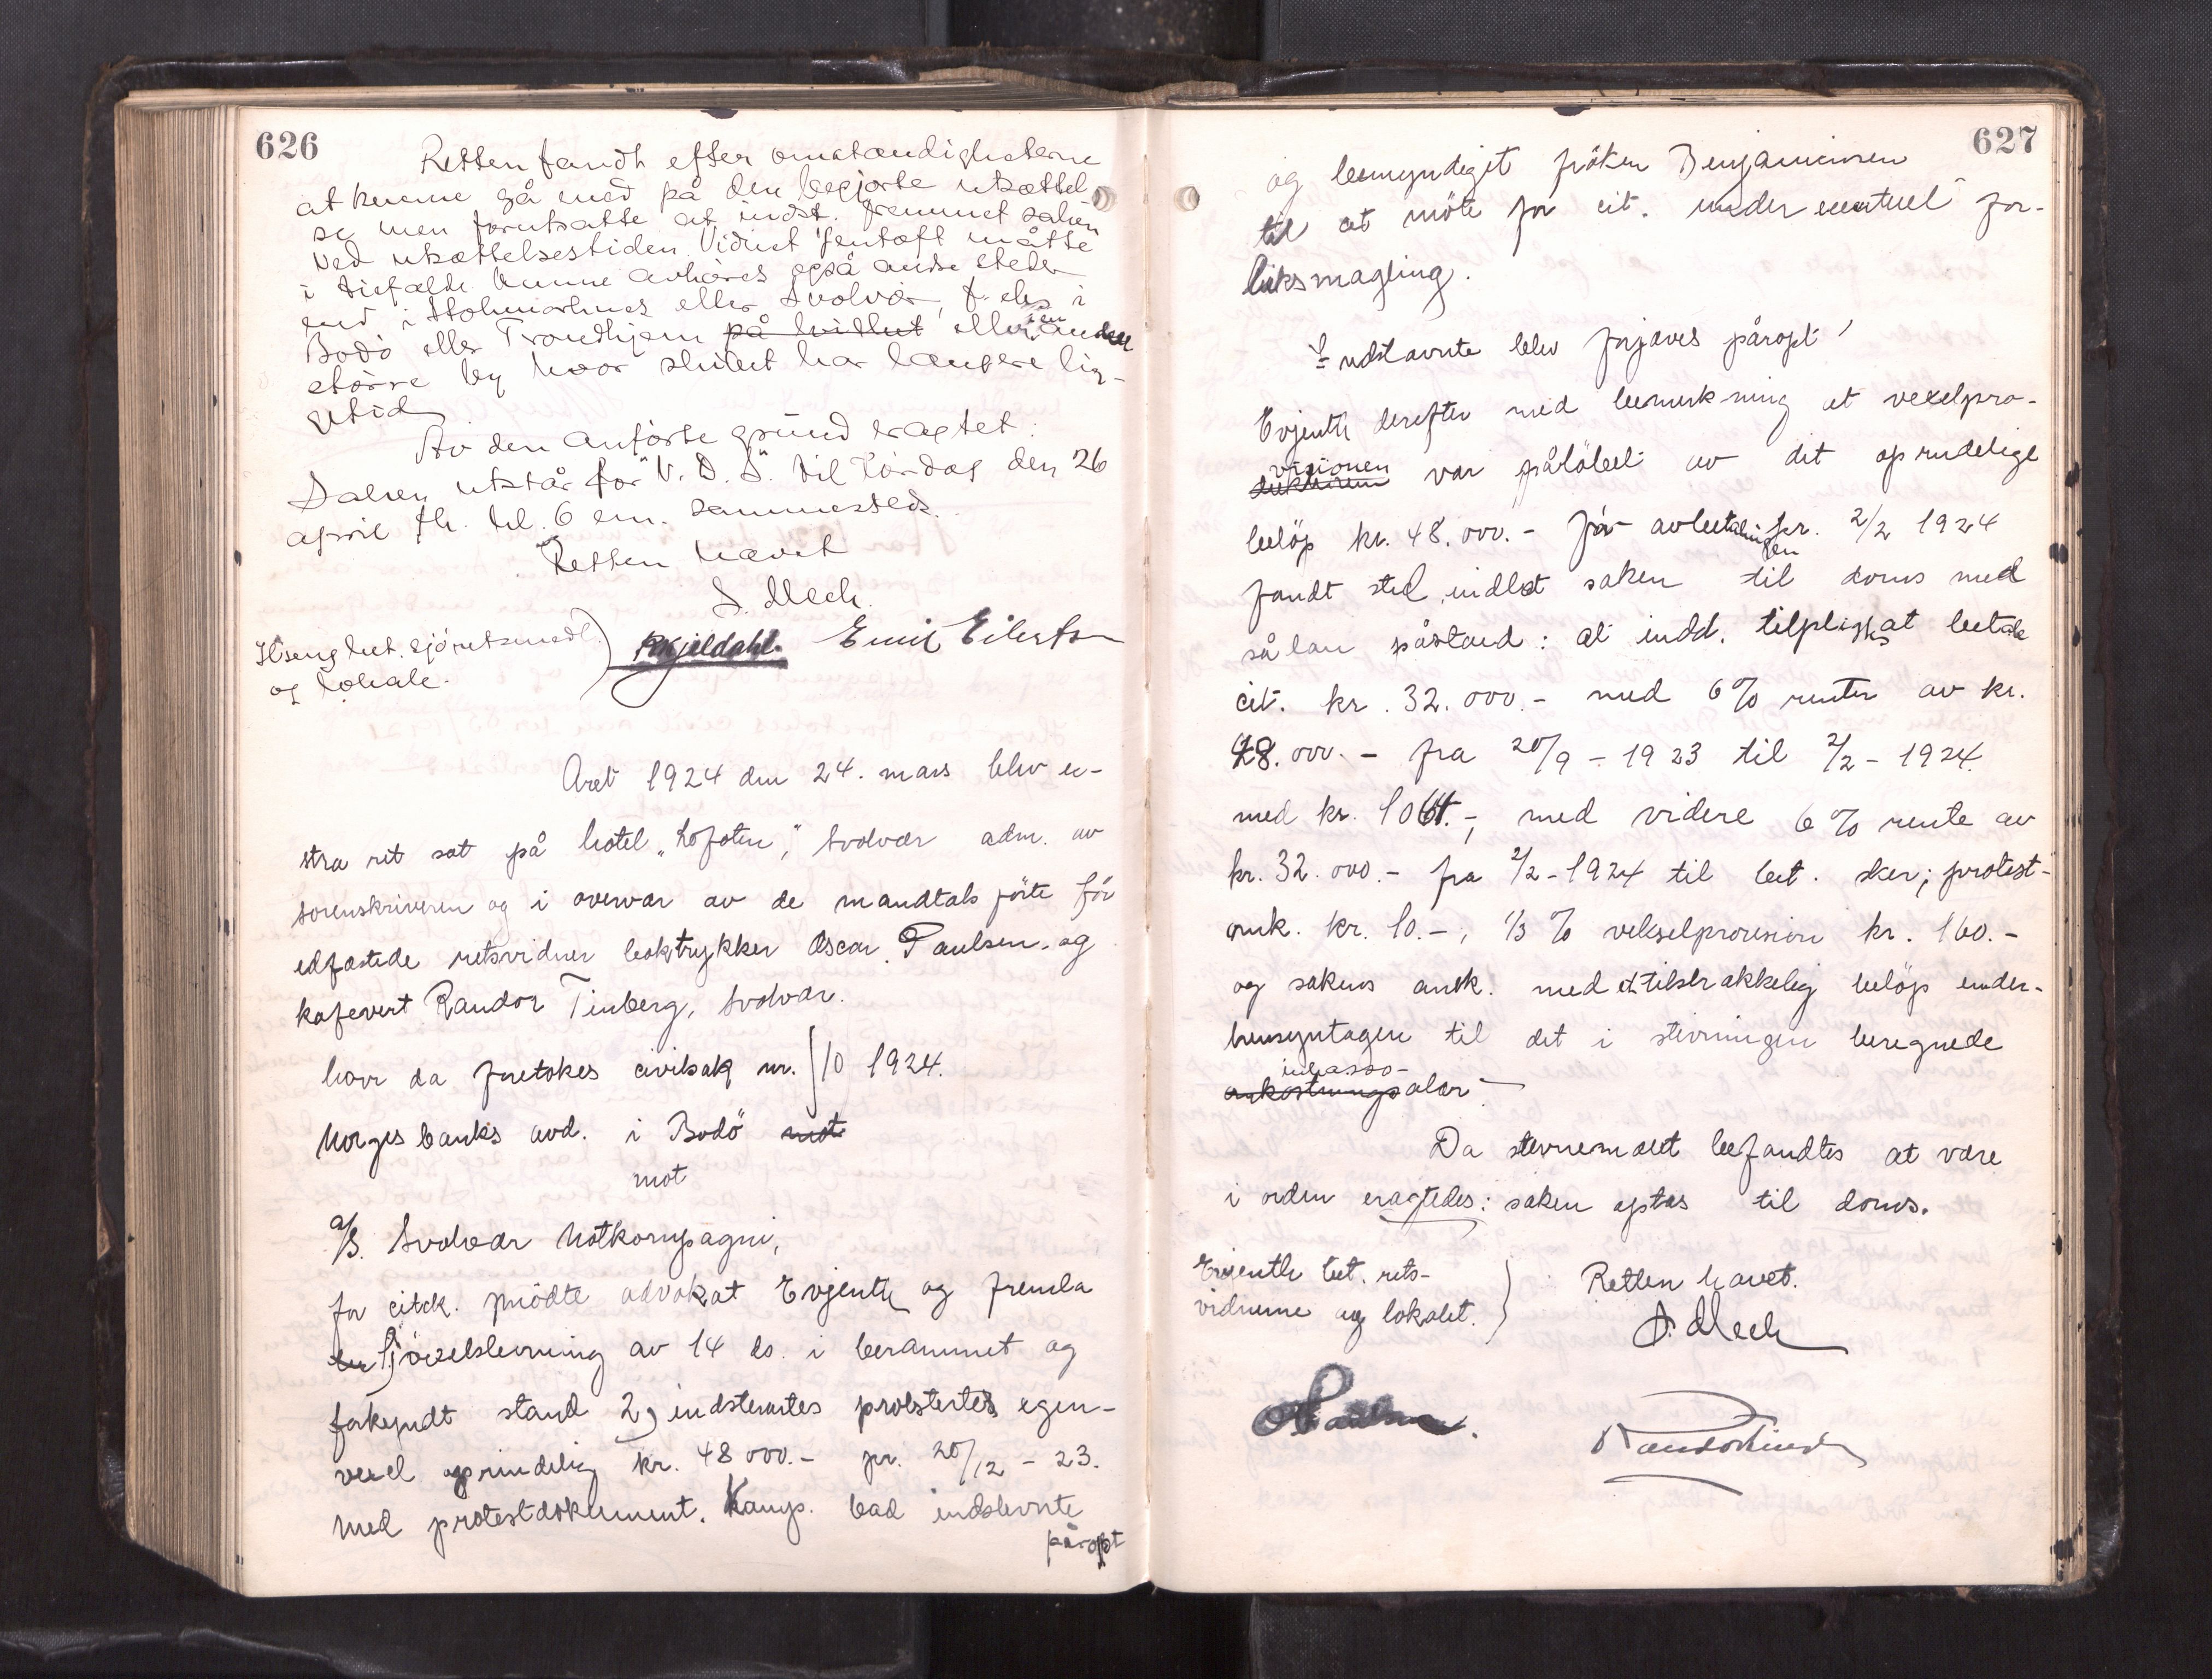 626
Retten fandt efter omstændigheterne
at kunne gå med på den begjærte utsættel
se men forutsatte at indst. fremmet saken
ved utsættelsestiden. Vidnet Jentoft måtte
i tilfælde kunne avhøres også andre steder
end i Stokmarknes eller Svolvær, f. eks i
Bodö eller Trondhjem på hvilket eller i en anden
större by hvor skibet har længere lig-
getid
Av den anförte grund eragtet:
Saken utstår for "V. D. S." til lördag den 26
april th. kl. 6 em. sammesteds.
Retten hævet
S. Mech.
bet. sjöretsmedl.
og lokale.
R Kjeldahl. Emil Eilertsen
Året 1924 den 24. mars blev ek-
stra ret sat på hotel "Lofoten", Svolvær adm. av
sorenskriveren og i overvær av de mandtals förte för
edfæstede retsvidner boktrykker Oscar Paulsen og
kafevert Randor Tinberg, Svolvær.
hvor da foretokes civilsak nr. 10 1924.
Norges banks avd. i Bodö mot
mot
A/S. Svolvær Notkompagni,
for citck. mödte advokat Evjenth og fremla
en 1) vexelstevning av 14 ds. i berammet og
forkyndt stand 2) indstevntes protesterte egen-
vexel oprindelig kr. 48 000.- pr. 20/12 - 23.
med protestdokument. Komp. bad indstevnte
påropt
627
og bemyndiget fröken Benjaminsen
til at möte for cit. under eventuel for-
liksmægling.
Indstævnte blev forgjæves påropt!
Evjenth derefter med bemerkning at vexelpro-
duktionen visionen var påløbet av det oprindelige
belöp kr. 48.000.- för avbetalingen pr. 2/2 1924
fandt sted indlot saken til doms med
sålan påstand: at indst. tilpligtes at betale
cit. kr. 32.000.- med 6% renter av kr.
48.000.- fra 20/9 - 1923 til 2/2 - 1924.
med kr. 1064.-, med videre 6% rente av
kr. 32.000.- fra 2/2 - 1924 til bet. sker; protest-
omk. kr. 10.-, 1/3 % vekselprovision kr. 160.-
og sakens omk. med et tilstrækkelig belöp under-
hensyntagen til det i stevningen beregnede
omkostnings inkasso-alær.-
Da stevnemålet befandtes at være
i orden eragtedes: saken optas til doms.
Evjenth bet. rets-
vidnerne og lokalet.
Retten hævet.
S. Mech
O Paulsen.
Randor Tinberg